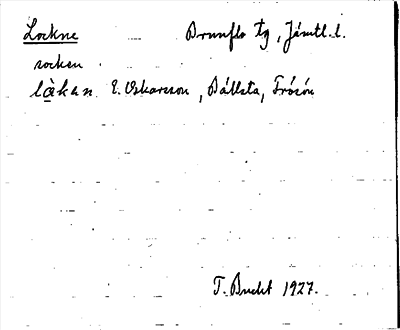 Lockne Brunflo tg, Jämtl. l.
socken
låkan. E. Oskarsson, Bällsta, Frösön
T. Bucht 1927.